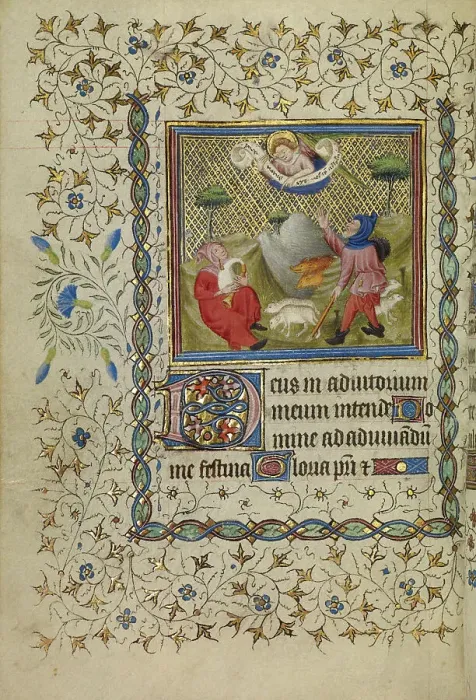 Deus in adiutorium
meum intende Do
mine ad adiuuādū
me festina Gloria pr̄i ⁊